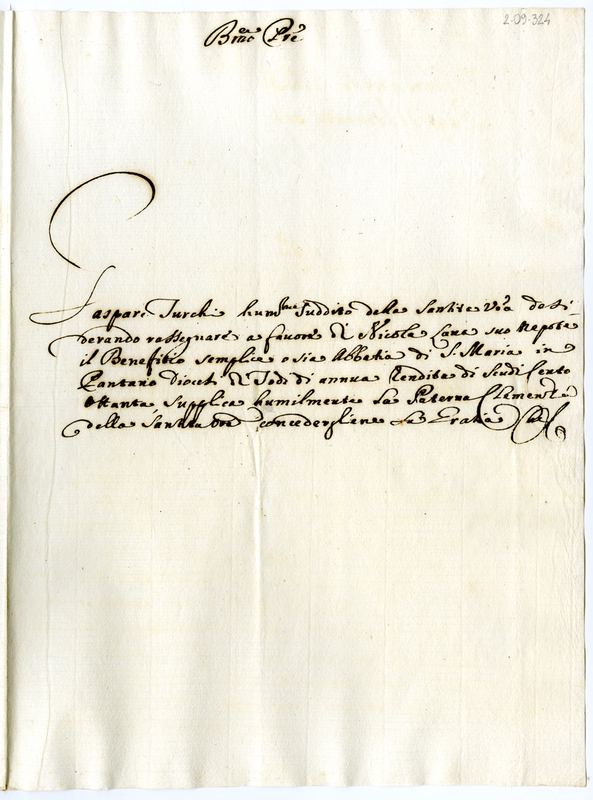 2-09-324
Bmo Pre
Gaspare Turchi hum.mo Suddito della Santità V.ra desi-
derando rassegnare a favore di Nicola suo Nepote
il Benefitio semplice o sia Abbatia di S. Maria in
Pantano Diocesi di Todi di annua Rendita di Scudi Cento
Ottanta supplica humilmente la Paterna Clemenza
della Santità Vra concedergliene la Gratia Che